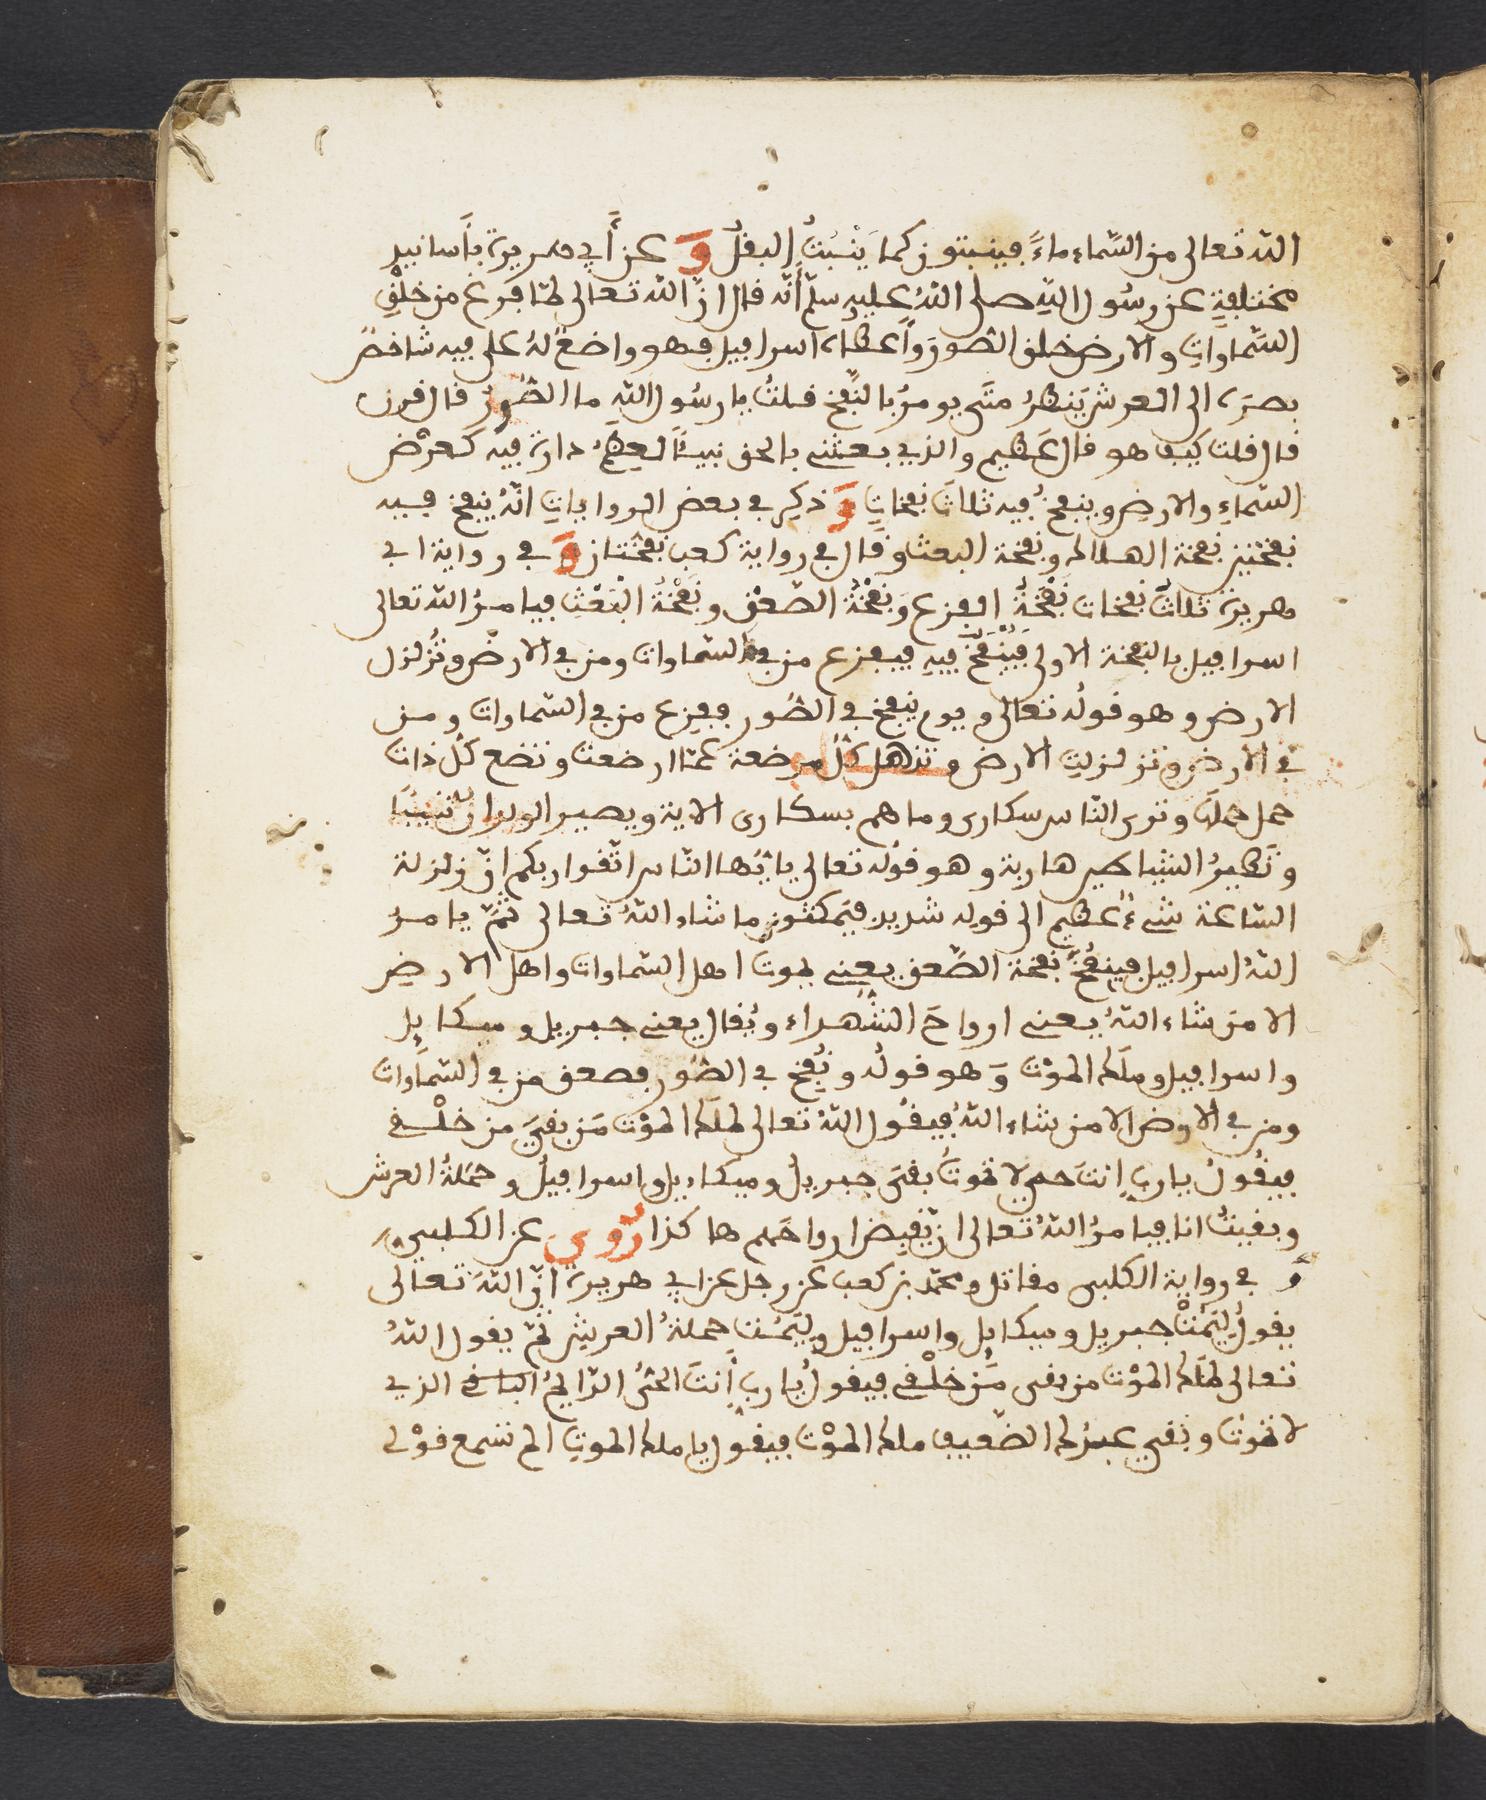 الله تعالى من السّماء ماءً فينبتون كما يَنْبُتُ البقلُ وَ عن أبي هريرة بأسانيد
مختلفةٍ عن رسُول اللهِ صلى اللهُ عليه سلّم أنّه قال انّ الله تعالى لمّا فَرغ من خلْقِ
السّماواتِ والارض خلق الصّورَ وأعطاه اسرافيل فهو واضعٌ لهُ على فيه شاخصٌ
بصرَه الى العرش يَنظرُ متَى يومرُ بالنّفخ قلتُ يا رسُول اللهِ ما الصُّورُ قال قرن
قال قلت كيف هو قال عَظيم والذي بعثني بالحق نبيّاً لعِظمُ دارة فيه كعرْض
السّماءِ والارضِ وينفخُ فيه ثلاثَ نفخاتٍ وَ ذكِر في بعض الرواياتِ انّهُ ينفخ فيه
نفختين نفخة الهلاك ونفخة البعث وقال في رواية كعب نفختان وَ في رواية ابي
هريرة ثلاثُ نفخات نَفْخَةُ الفزع وَنفْخَةُ الصّعْق ونَفْخَةُ الْبَعْثِ فيامرُ الله تعالى
اسرافيل بالنفخة الاولى فَيُنْفَخُ فيهِ فيفزع من في السّماوات ومن في الارضِ وتُزلزل
الارض وهو قولُه تعالى ويوم ينفخ في الصُور ففزِع من في السّماوات ومن
في الارض وتزلزلتِ الارض وتذهل كلُّ مرضعة عمّا ارضعت وتضع كلّ ذات
حمل حملَها وترى النّاس سكارى وما هم بسكارى الاية ويصير الولدان شيبًا
وتَطيرُ الشياطين هاربة وهو قولُه تعالى يا يُّها النّاس اتّقوا ربكم انّ زلزلة
السّاعة شيءٌ عظيم الى قوله شديد فيَمكثون ما شاء اللهُ تعالى ثُمّ يامرُ
اللهُ اسرافيل فينفُخُ نفخة الصّعق يعني يموت اهل السّماوات واهل الارضِ
الا من شاء اللهُ يعنى ارواحَ الشُهداء ويُقال يعنى جبريل وميكايل
واسرافيل وملَك الموْت وَ هو قولُه ونُفِخ في الصُور فصعق من في السّماَوات
ومن في الارض الا من شاء اللهُ فيقُول اللهُ تعالى لملَك الموْت مَن بقيَ من خلْقي
فيقُولُ يا ربِ انتَ حي لا تموتُ بقىَ جبريلُ وميكاءيل واسرافيلُ وحمَلةُ العرش
وبقيتُ انا فيامرُ اللهُ تعالى ان يّقبِض ارواحَهم هاكذا رُوِي عن الكلبي
و في رواية الكلبي مقاتل ومحمّد بن كعب عن رجل عن ابي هريرة انّ اللهَ تعالى
يقولُ لِيَمُتْ جبريل وميكايل واسرافيل وليَمُت حملةُ العرشِ ثمّ يقول اللهُ
تعالى لملَك الموْت من بقى مَن خلْقي فيقولُ يا ربِ أنتَ الحيُّ الدّايمُ الباقى الذي
لا تموُت وبَقي عبدُك الضّعيف ملك الموْت فيقول يا ملك الموتِ الم تسْمع قوْلي